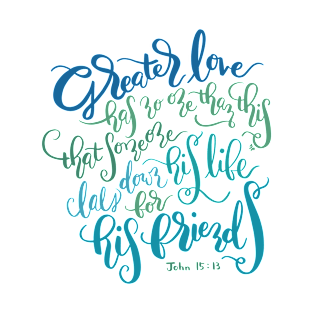 Greater love
has no one than this
that someone
lays down his life
for
his friends
John 15:13